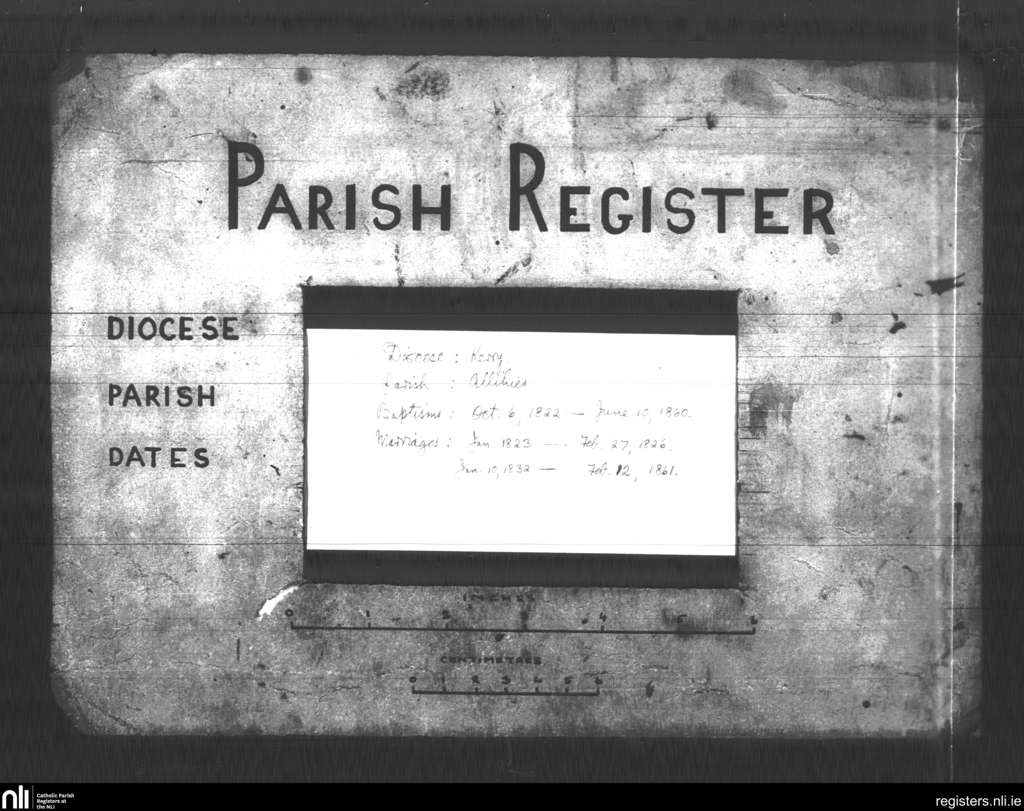 PARISH REGISTER
DIOCESE
PARISH
DATES
Diocese : Kerry.
Parish : Allihies
Baptisms : Oct. 6, 1822 — June 10, 1860.
Marriages : Jan 1823 — Feb. 27, 1826.
Jan. 10, 1832 — Feb. 12, 1861.
INCHES
0 1 2 3 4 5 6
CENTIMETRES
0 1 2 3 4 5 6
nli Catholic Parish
Registers at
the NLI
registers.nli.ie